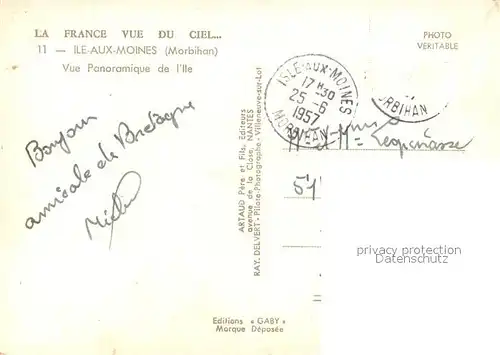 LA FRANCE VUE DU CIEL...
11 — ILE-AUX-MOINES (Morbihan)
Vue Panoramique de l'Ile
PHOTO
VÉRITABLE
ISLE-AUX-MOINES
17 H 30
25 -6
1957
MORBIHAN
ORBIHAN
Bonjour
amicale de Bretagne
ARTAUD Père et Fils, Éditeurs
avenue de la Close, NANTES
RAY. DELVERT - Pilote-Photographe - Villeneuve-sur-Lot
privacy protection
Datenschutz
Editions « GABY »
Marque Déposée